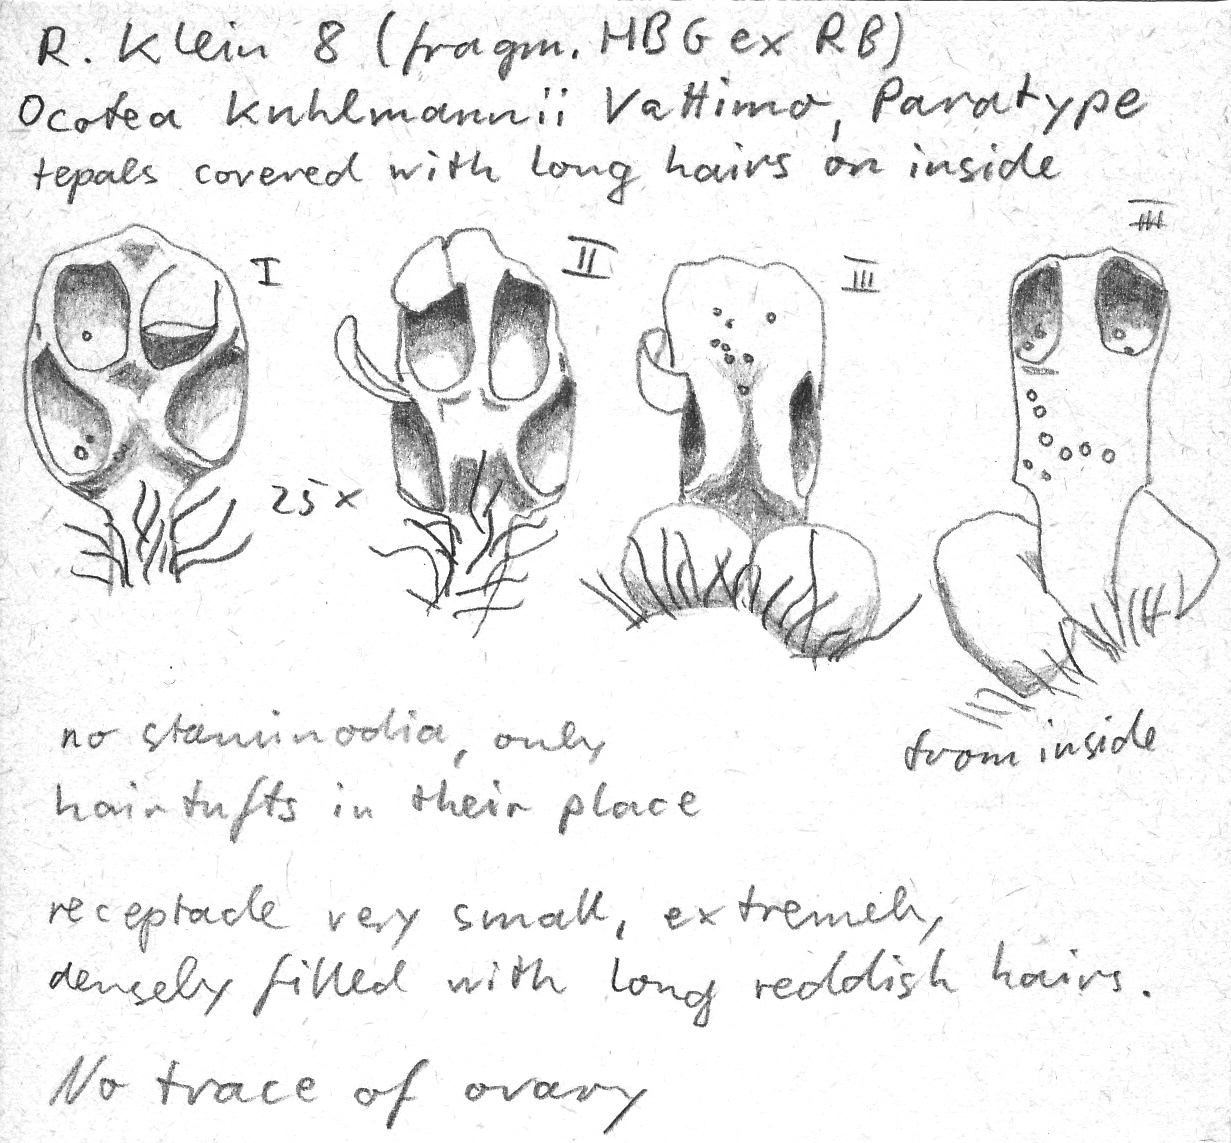 R. Klein 8 (fragm. HBG ex RB)
Ocotea Kuhlmannii Vattimo, Paratype
tepals covered with long hairs on inside
I
II
III
III
25 x
from inside
no staminodia, only
hairtufts in their place
receptacle very small, extremely
densely filled with long reddish hairs.
No trace of ovary